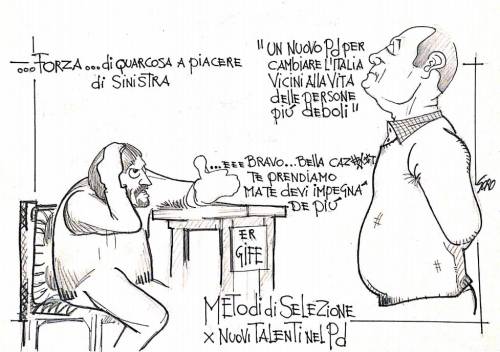 ...FORZA...di QUARCOSA A PIACERE
di SINISTRA
"UN NUOVO Pd PER
CAMBIARE L'ITALIA
VICINI ALLA VITA
delle PERSONE
PIÚ dEBOLI"
...EEE BRAVO...BELLA CAZ
TE PRENDIAMO
MA TE dEVI IMPEGNA'
DE PIÚ
ER
GIFE
METOdi di SELEZIONE
x NUOVI TALENTI NEL Pd